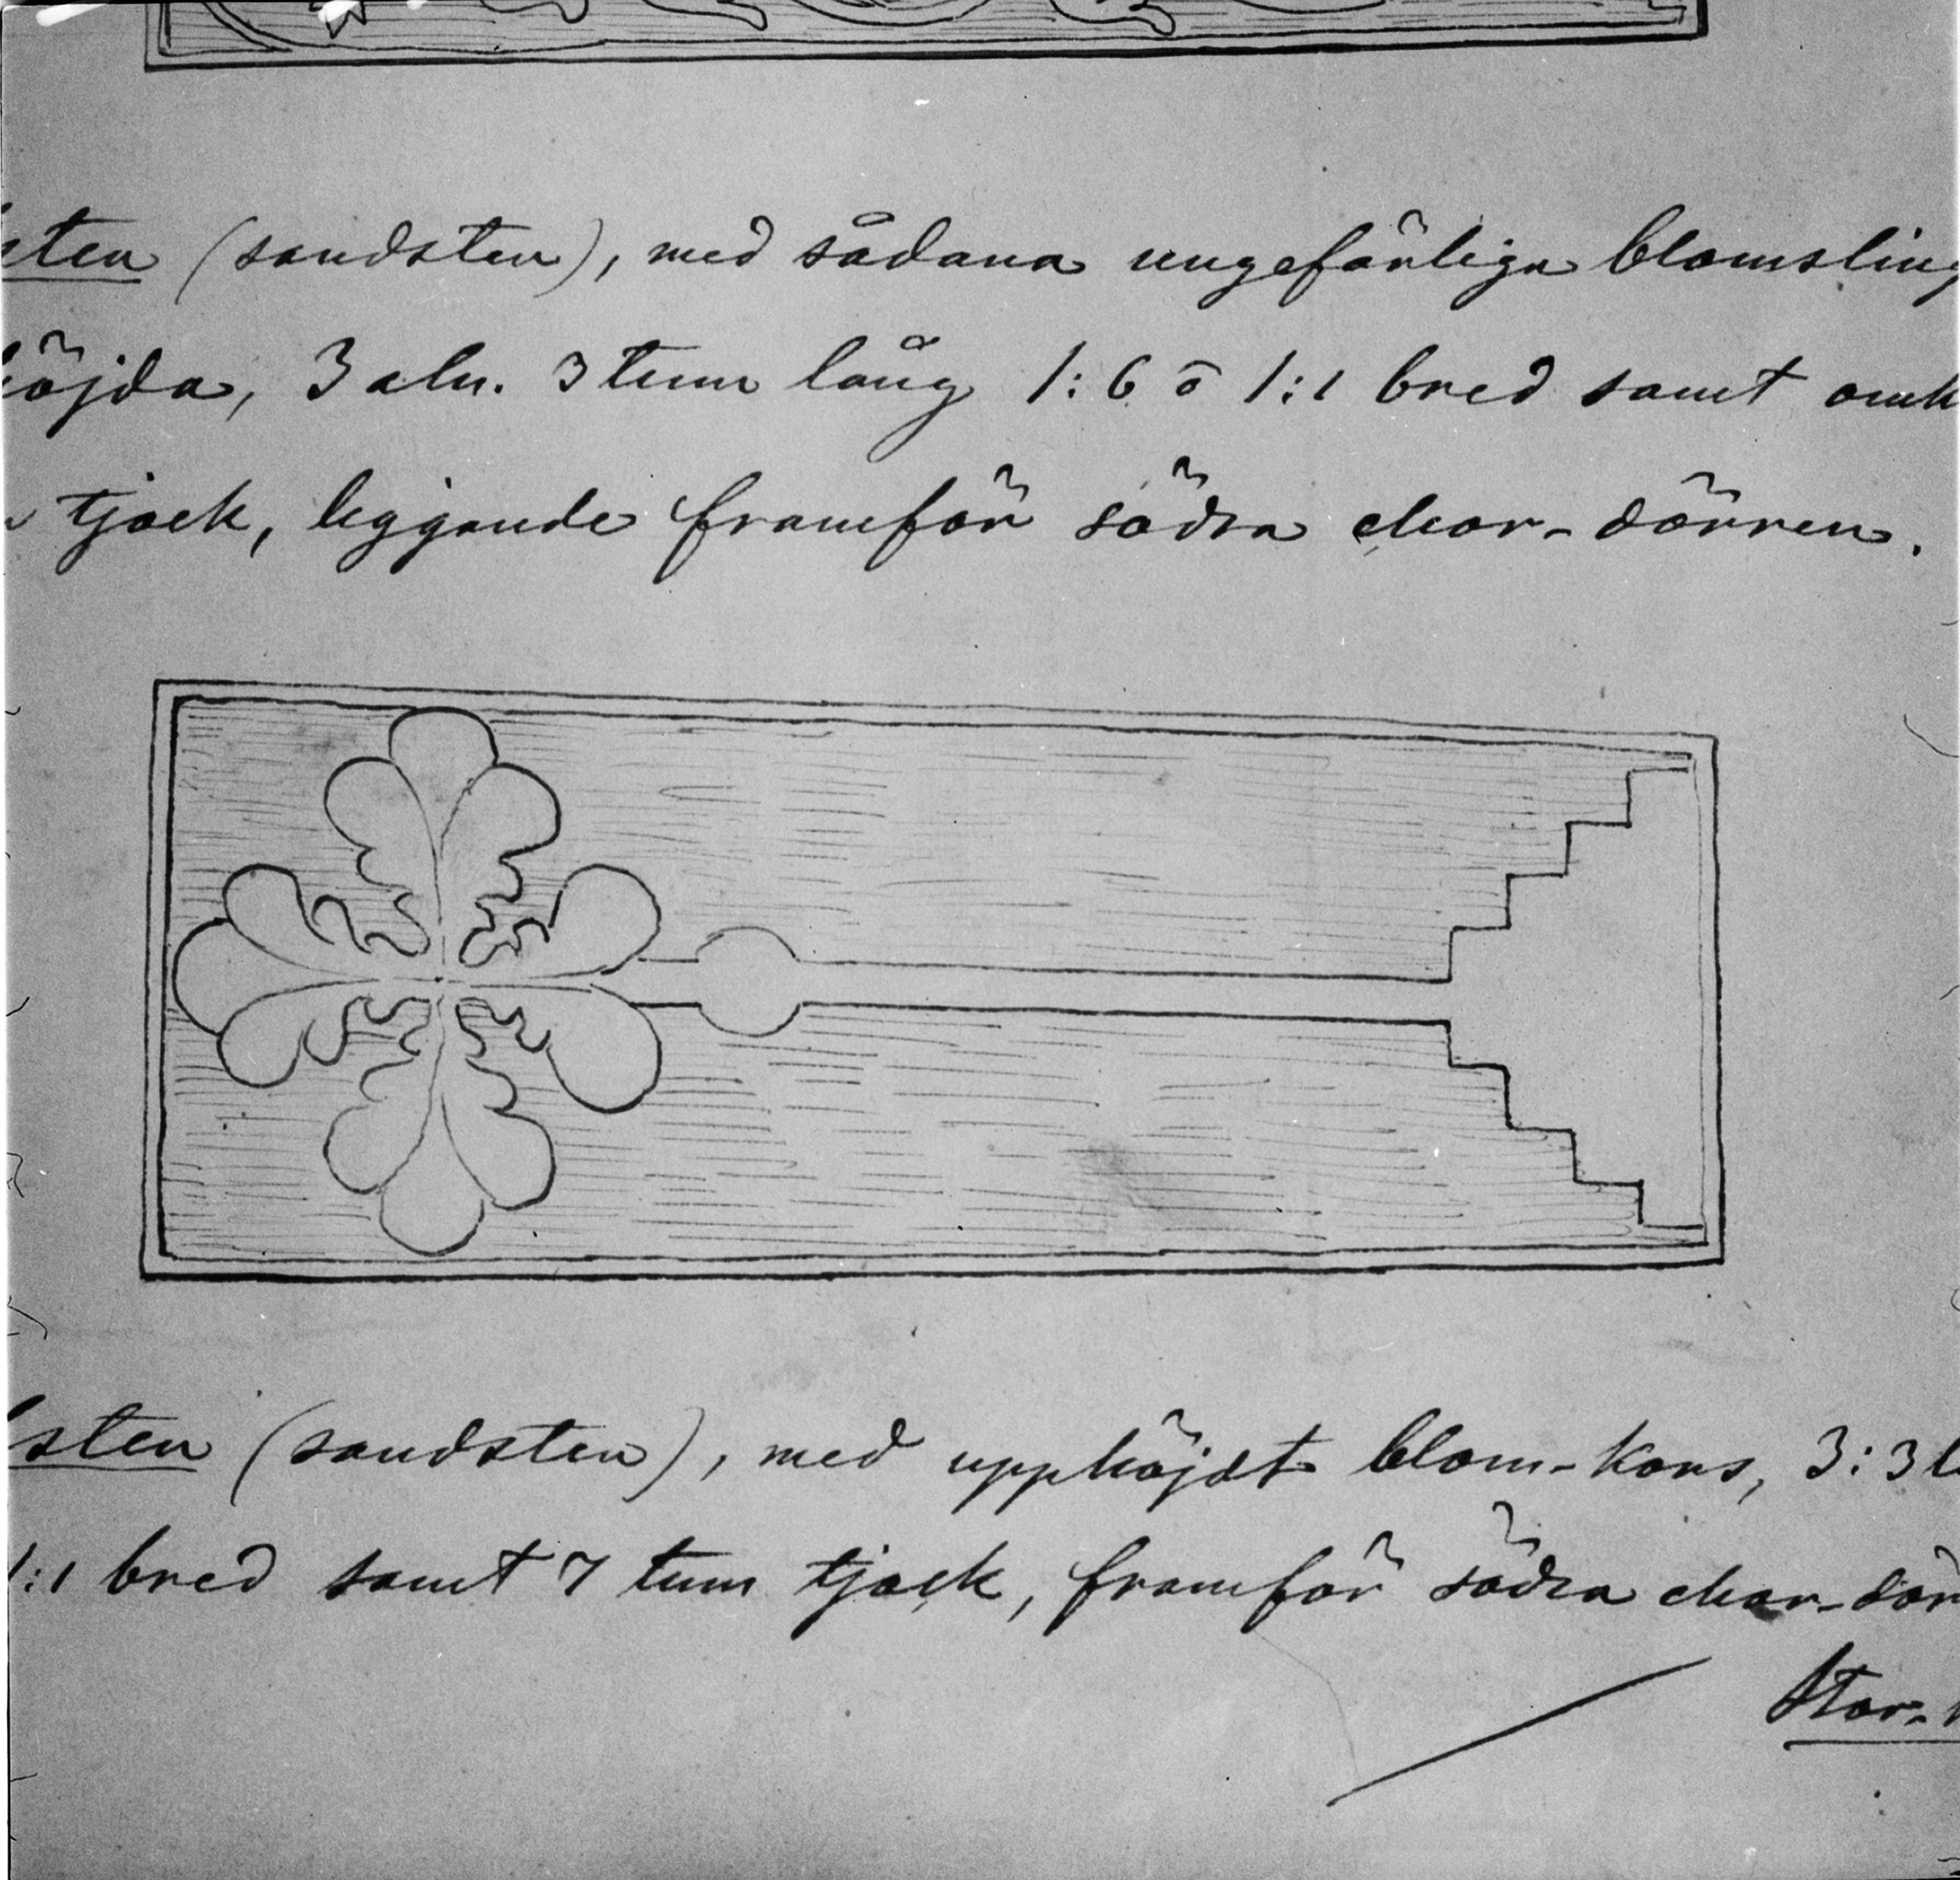 sten (sandsten), med sådana ungefärliga blomsling
höjda, 3 aln. 3 tum lång 1:6 o 1:1 bred samt omk
tjock, liggande framför södra chor-dörren.
sten (sandsten), med upphöjdt blom-kors, 3:3 l
1:1 bred samt 7 tum tjock, framför södra chor-dör
Stor-